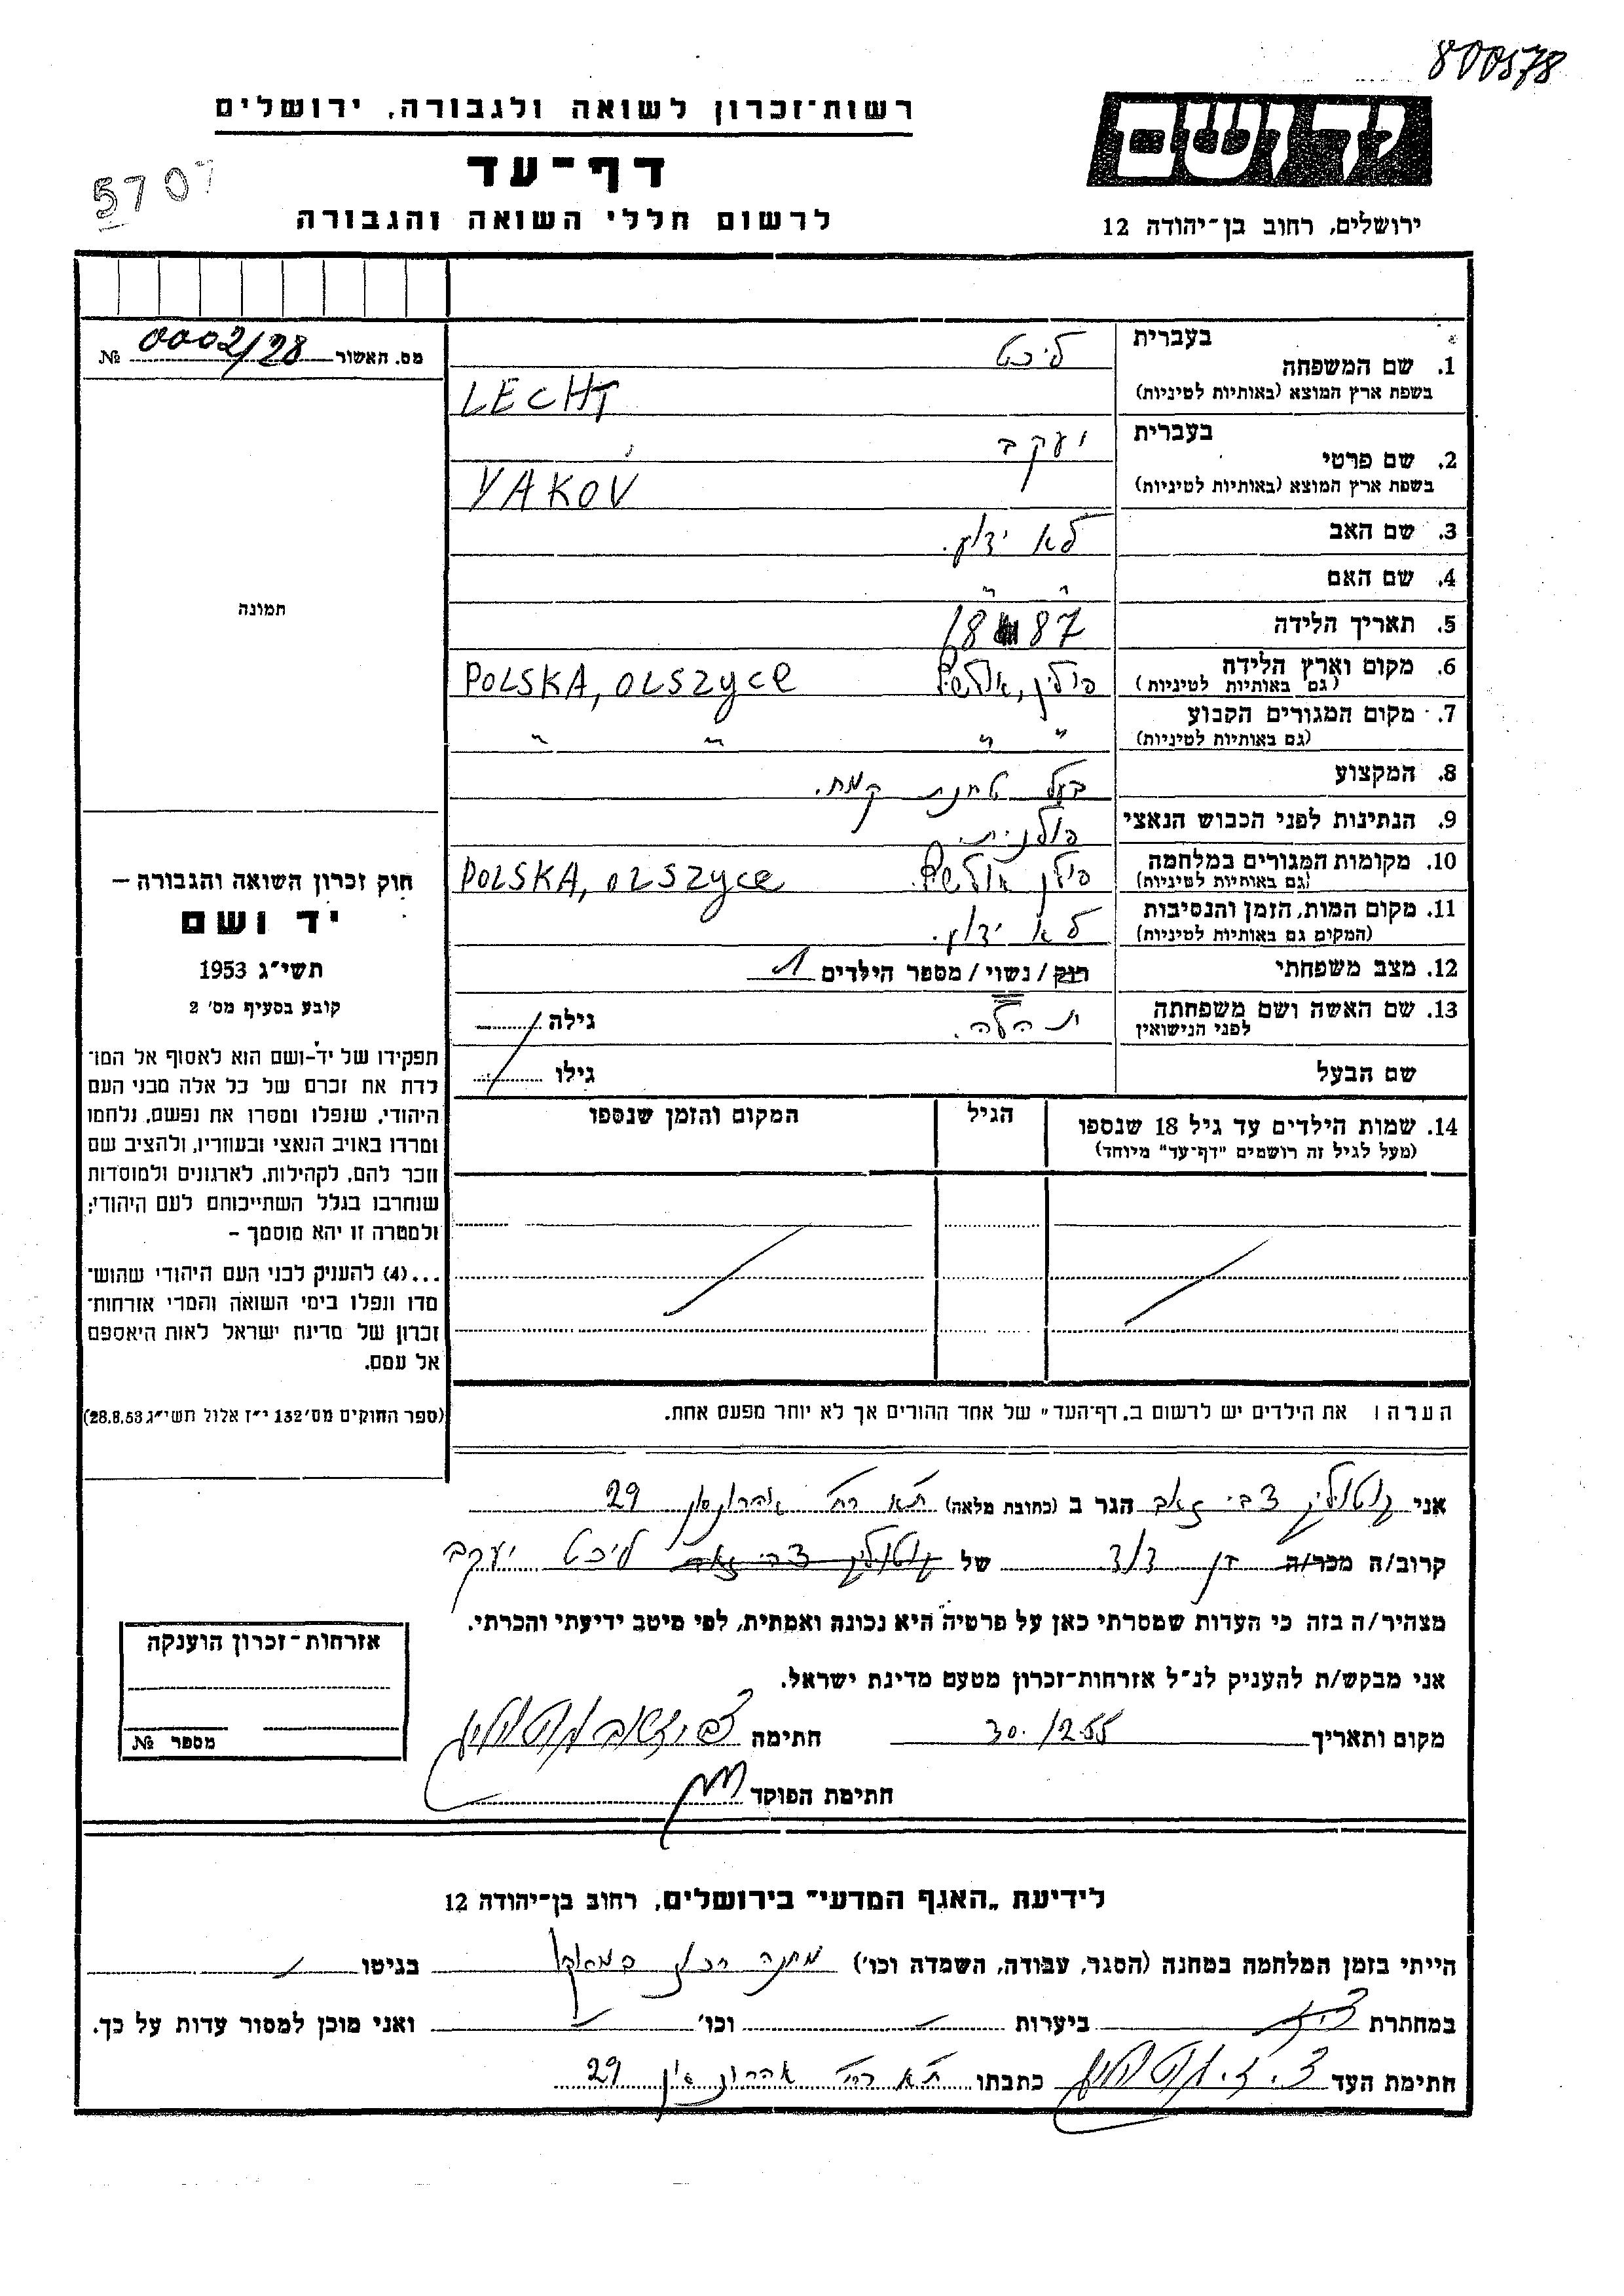 800578
רשות-זכרון לשואה ולגבורה, ירושלים
יד ושם
דף-עד
5707
לרשום חללי השואה והגבורה
ירושלים, רחוב בן-יהודה 12
מס. האשור 0002/28 №
בעברית ליכט
1. שם המשפחה
בשפת ארץ המוצא (באותיות לטיניות) LECHT
בעברית יעקב
2. שם פרטי
בשפת ארץ המוצא (באותיות לטיניות) YAKOV
3. שם האב לא ידוע.
4. שם האם " "
תמונה
5. תאריך הלידה 1887
6. מקום וארץ הלידה פולין, POLSKA, OLSZYCE
(גם באותיות לטיניות)
7. מקום המגורים הקבוע " " " "
(גם באותיות לטיניות)
8. המקצוע בעל טחנת קמח.
9. הנתינות לפני הכבוש הנאצי פולנית.
10. מקומות המגורים במלחמה פולין POLSKA, OLSZYCE
(גם באותיות לטיניות)
11. מקום המות, הזמן והנסיבות לא ידוע.
(המקום גם באותיות לטיניות)
12. מצב משפחתי רוק / נשוי / מספר הילדים 1
13. שם האשה ושם משפחתה גילה
לפני הנישואין
שם הבעל גילו
14. שמות הילדים עד גיל 18 שנספו הגיל המקום והזמן שנספו
(מעל לגיל זה רושמים "דף-עד" מיוחד)
הערה: את הילדים יש לרשום ב"דף-העד" של אחד ההורים אך לא יותר מפעם אחת.
חוק זכרון השואה והגבורה –
יד ושם
תשי"ג 1953
קובע בסעיף מס' 2
תפקידו של יד-ושם הוא לאסוף אל המו-
לדת את זכרם של כל אלה מבני העם
היהודי, שנפלו ומסרו את נפשם, נלחמו
ומרדו באויב הנאצי ובעוזריו, ולהציב שם
וזכר להם, לקהילות, לארגונים ולמוסדות
שנחרבו בגלל השתייכותם לעם היהודי;
ולמטרה זו יהא מוסמך –
...(4) להעניק לבני העם היהודי שהוש-
מדו ונפלו בימי השואה והמרי אזרחות-
זכרון של מדינת ישראל לאות היאספם
אל עמם.
(ספר החוקים מס' 132 י"ז אלול תשי"ג 28.8.53)
אני צבי זאב הגר ב (כתובת מלאה) ת"א רח' אהרונסון 29
קרוב/ה מכר/ה בן דוד של צבי זאב ליכט יעקב
מצהיר/ה בזה כי העדות שמסרתי כאן על פרטיה היא נכונה ואמתית, לפי מיטב ידיעתי והכרתי.
אני מבקש/ת להעניק לנ"ל אזרחות-זכרון מטעם מדינת ישראל.
מקום ותאריך 30.12.55 חתימה
חתימת הפוקד
אזרחות-זכרון הוענקה
מספר №
לידיעת "האגף המדעי" בירושלים, רחוב בן-יהודה 12
הייתי בזמן המלחמה במחנה (הסגר, עבודה, השמדה וכו') מחנה בגיטו
במחתרת ביערות וכו' ואני מוכן למסור עדות על כך.
חתימת העד כתבתו ת"א רח' אהרונסון 29